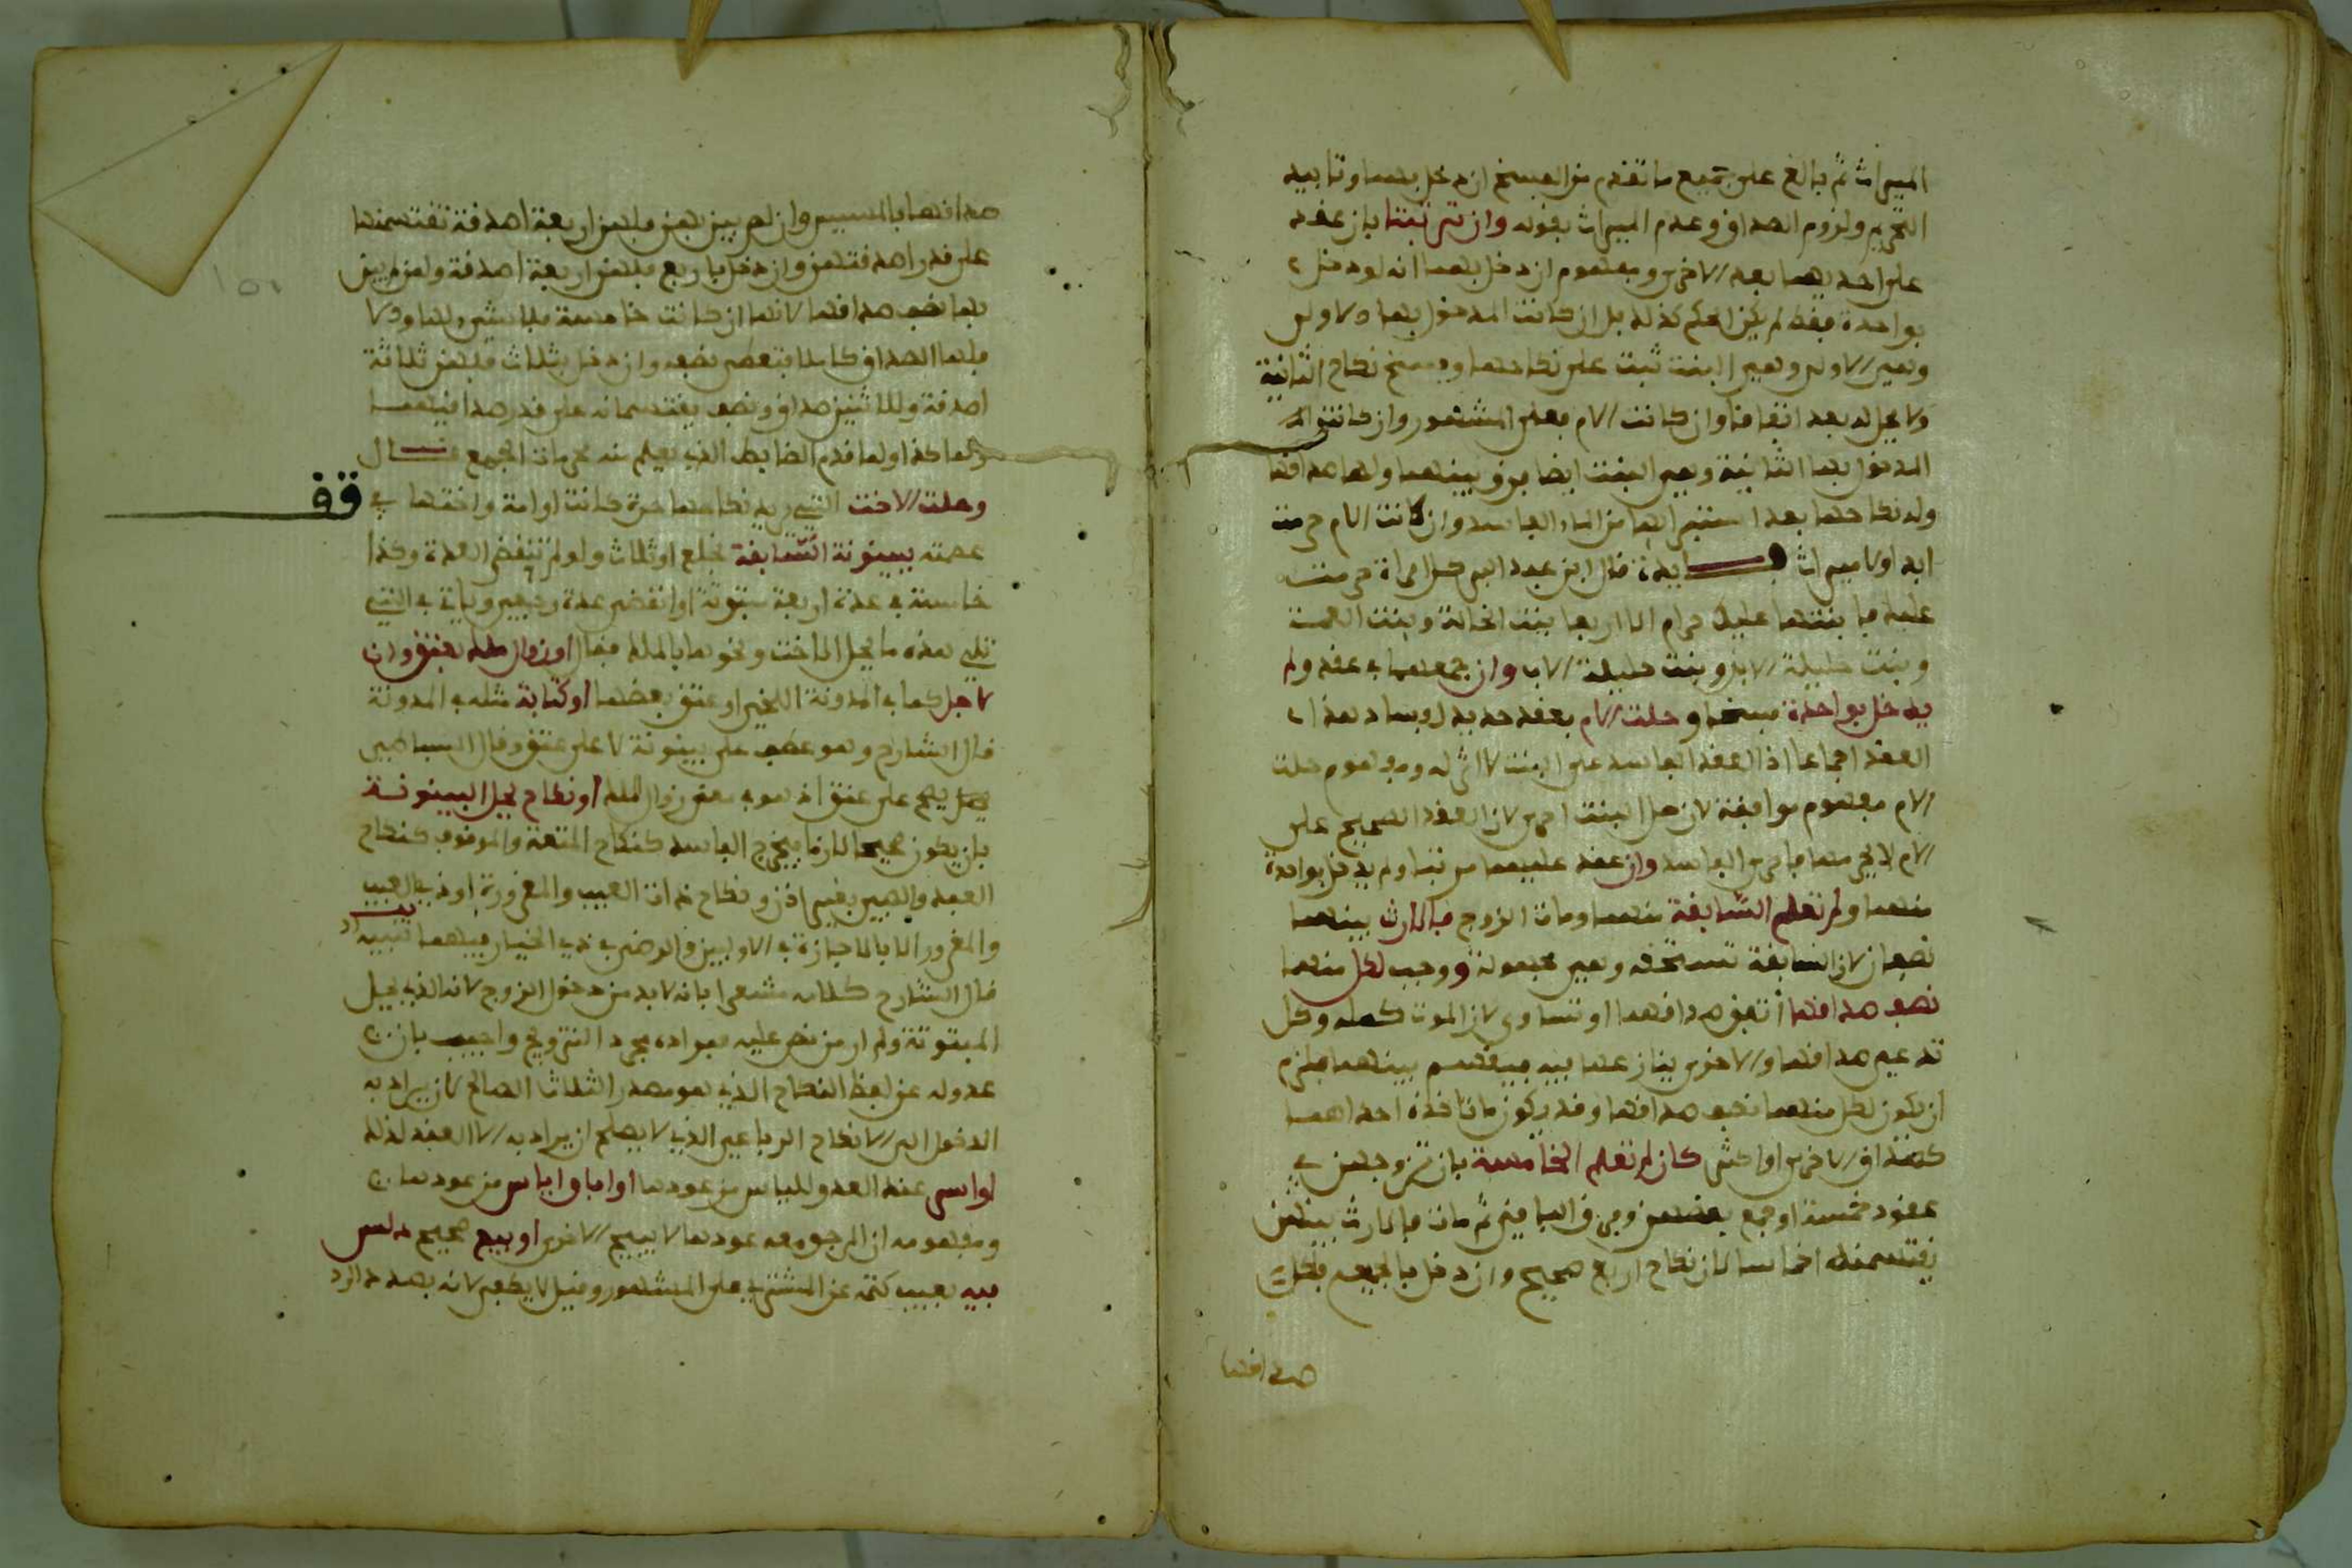 الميراث ثم بالغ على جميع ما تقدم من الفسخ ان دخل بهما وتابيد
التحريم ولزوم الصداق وعدم الميراث بقوله وان ترتبتا بان عقد
على احديهما بعد الاخرى ومفهوم ان دخل بهما انه لو دخل
بواحدة فقط لم يكن الحكم كذلك بل ان كانت المدخول بها الاولى
وهي الاولى وهي البنت ثبت على نكاحها وفسخ نكاح الثانية
ولا تحل له بعد اتفاقا وان كانت الام فعلى المشهور وان كانت
المدخول بها الثانية وهي البنت ايضا فرق بينهما ولها صداقها
وله نكاحها بعد استبرائها من الماء الفاسد وان كانت الام حرمت
ابدا ولا ميراث فايدة قال ابن عبد البر كل امراة حرمت
عليك فابنتها عليك حرام الا اربعا بنت الخالة وبنت العمة
وبنت حليلة الابن وبنت حليلة الاب وان جمعهما في عقد ولم
يدخل بواحدة فسخ وحلت الام بعقد جديد لفساد هذا
العقد اجماعا اذ العقد الفاسد على البنت لا اثر له ومفهوم حلت
الام مفهوم موافقة لان حل البنت احرى لان العقد الصحيح على
الام لا يحرمها فاحرى الفاسد وان عقد عليهما مرتبا ولم يدخل بواحدة
منهما ولم تعلم السابقة منهما ومات الزوج فالارث بينهما
نصفان لان السابقة تستحقه وهي مجهولة ووجب لكل منهما
نصف صداقها اتفق صداقهما او تساوى لان الموت كمله وكل
تدعي صداقها والاخرى ينازعها فيه فيقسم بينهما فيلزم
ان يكون لكل منهما نصف صداقها وقد يكون ما تاخذه احداهما
كصداق الاخرى او اكثر كان لم تعلم الخامسة بان تزوجهن في
عقود خمسة او جمع بعضهن وفرق الباقين ثم مات فالارث بينهن
يقتسمنه اخماسا لان نكاح اربع صحيح وان دخل بالجميع فلكل
صداقها
صداقها بالمسيس وان لم يبن بهن فلهن اربعة اصدقة تقتسمنها
على قدر اصدقتهن وان دخل باربع فلهن اربعة اصدقة ولمن لم يبن
بها نصف صداقها لانها ان كانت خامسة فلا شيء لها والا
فلها الصداق كاملا فتعطى نصفه وان دخل بثلاث فلهن ثلاثة
اصدقة وللاثنين صداق ونصف يقتسمانه على قدر صداقيهما
وهكذا ولما قدم الضابط الذي يعلم منه محرمات الجمع قال
وحلت الاخت التي يريد نكاحها حرة كانت او امة واختها في
قف
عصمته ببينونة السابقة بخلع او ثلاث ولو لم تنقض العدة وكذا
خامسة في عدة اربعة مبتوتة او انقضى عدة رجعي وياتي في التي
تلي هذه ما يحل الاخت ونحوها بالملك فقال او زوال ملك بعتق وان
لاجل كما في المدونة اللخمي او عتق بعضها او كتابة مثله في المدونة
قال الشارح وهو عطف على بينونة لا على عتق وقال البساطي
يصح على عتق اذ هو في معنى زوال الملك او نكاح يحل البينونة
بان يكون صحيحا لازما فيخرج الفاسد كنكاح المتعة والموقوف كنكاح
العبد والصبي بغير اذن ونكاح ذات العيب والمغرورة او ذي العيب
والمغرور الا بالاجازة في الاولين والرضى في ذي الخيار فيهما تنبيه
قال الشارح كلامه مشعر بانه لا بد من دخول الزوج لانه الذي يحل
المبتوتة ولم ار من نص عليه فمراده مجرد التزويج واجيب بان
عدوله عن لفظ النكاح الذي هو مصدر الثلاث الصالح لان يراد به
الدخول الى الانكاح الرباعي الذي لا يصلح ان يراد به الا العقد لذلك
او اسر عند العدو للياس من عودها او اباق اياس من عودها
ومفهومه ان المرجو معه عودها لا يبيح الاخرى او بيع صحيح دلس
فيه بعيب كتمه عن المشتري على المشهور وقيل لا يكفي لانه بصدد الرد